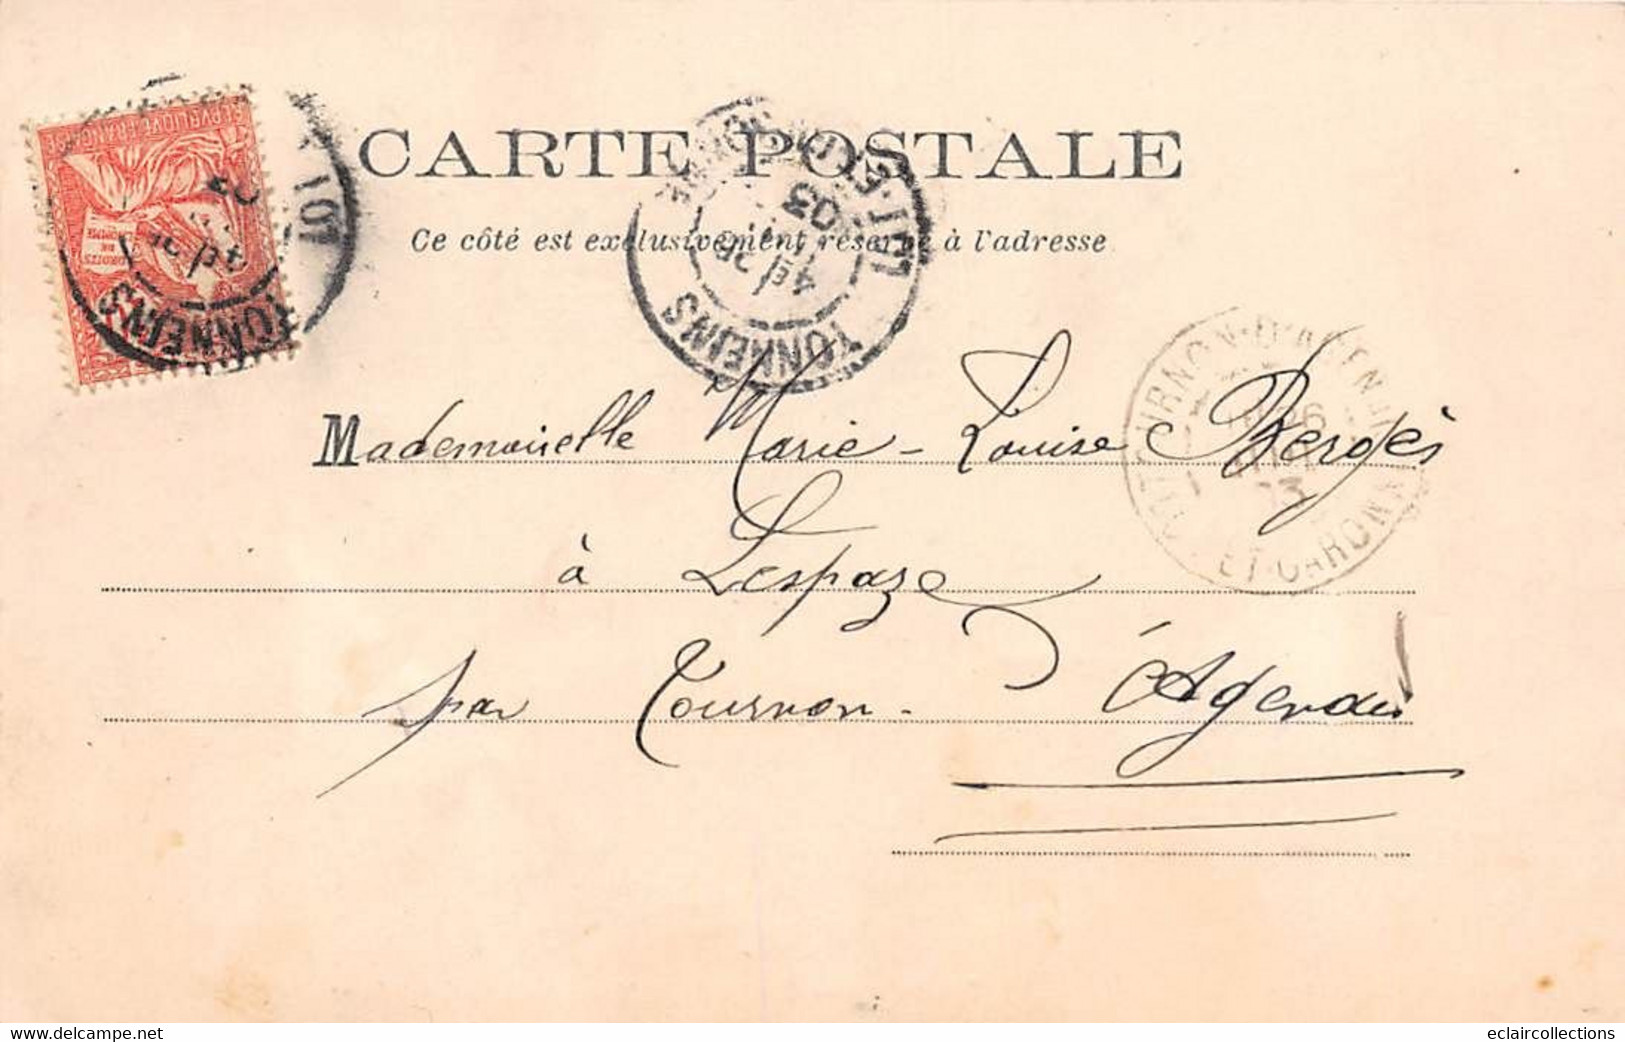 CARTE POSTALE
Ce côté est exclusivement réservé à l'adresse
REPUBLIQUE FRANCAISE
DROITS
DE
L'HOMME
TONNEINS
LOT
TONNEINS
LOT-ET-GARONNE
4E
26
03
TOURNON-D'AGENAIS
26
03
LOT-ET-GARONNE
Mademoiselle Marie-Louise Bergès
à Lespaze
par Tournon - d'Agenais
eclaircollections